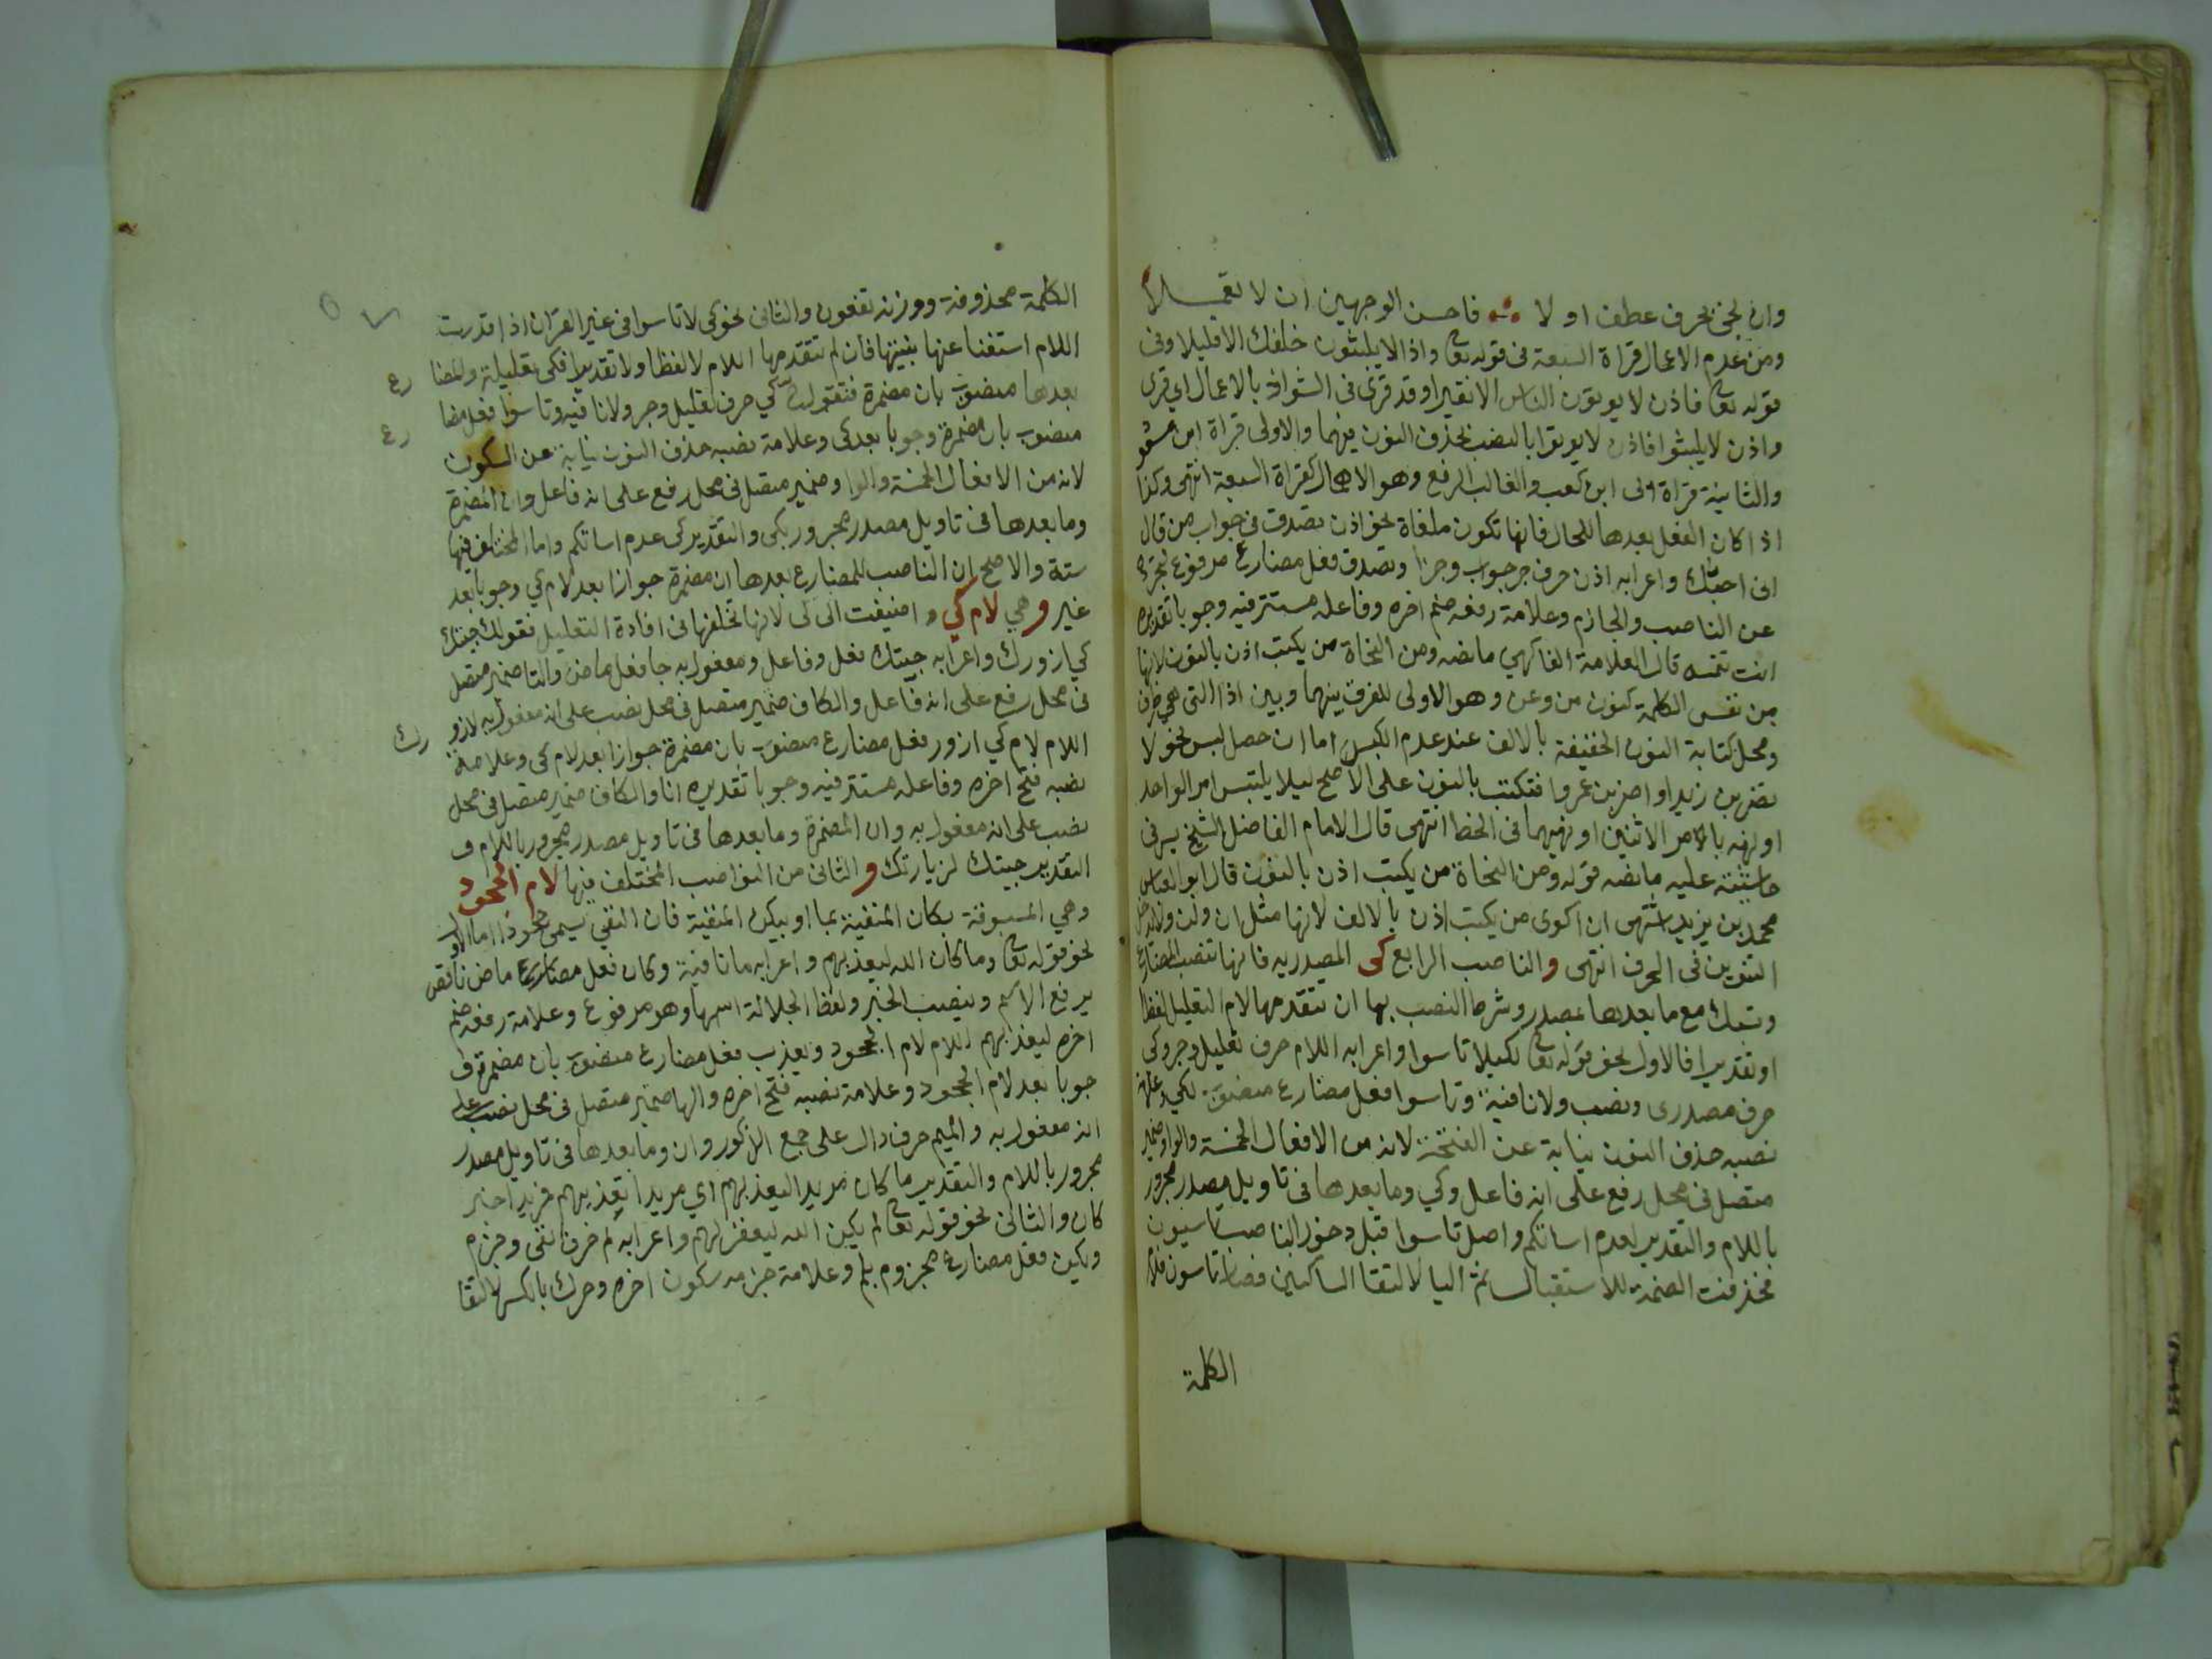 وان تجئ بحرف عطف او لا فاحسن الوجهين ان لا تعملا
ومن عدم الاعمال قراة السبعة فى قوله تعالى واذا لا يلبثون خلفك الا قليلا وفى
قوله تعالى فاذن لا يوتون الناس الانقيرا وقد قرئ فى الشواذ بالاعمال اي قرى
واذن لا يلبثوا فاذن لا يوتوا بالنصب بحذف النون فيهما والاولى قراة ابن مسعو
والثانية قراة ابى ابن كعب والغالب الرفع وهو الاهمال كقراة السبعة انتهى وكذا
اذا كان الفعل بعدها للحال فانها تكون ملغاة نحو اذن تصدق فى جواب من قال
انى احبك واعرابه اذن حرف جواب وجزا وتصدق فعل مضارع مرفوع لتجرده
عن الناصب والجازم وعلامة رفعه ضم اخره وفاعله مستتر فيه وجوبا تقديره
انت تتمه قال العلامة الفاكهي ما نصه ومن النحاة من يكتب اذن بالنون لانها
من نفس الكلمة كنون من وعن وهو الاولى للفرق بينها وبين اذا التى هي ظرف
ومحل كتابة النون الخفيفة بالالف عند عدم اللبس اما ان حصل لبس نحو لا
تضربن زيدا واضربن عمروا فتكتب بالنون على الاصح ليلا يلتبس امر الواحد
او نهيه بالامر الاثنين او نهيهما فى الخط انتهى قال الامام الفاضل الشيخ يس فى
حاشيته عليه ما نصه قوله ومن النحاة من يكتب اذن بالنون قال ابو العباس
محمد بن يزيد اشتهى ان اكوى من يكتب اذن بالالف لانها مثل ان ولن ولا يدخل
التنوين فى الحرف انتهى والناصب الرابع كى المصدريه فانها تنصب المضارع
وتسبك مع ما بعدها بمصدر وشرط النصب بها ان تتقدمها لام التعليل لفظا
او تقديرا فالاول نحو قوله تعالى لكيلا تاسوا واعرابه اللام حرف تعليل وجر وكى
حرف مصدرى ونصب ولا نافية وتاسوا فعل مضارع منصوب بكي وعلامة
نصبه حذف النون نيابة عن الفتحة لانه من الافعال الخمسة والواو ضمير
متصل فى محل رفع على انه فاعل وكي وما بعدها فى تاويل مصدر مجرور
باللام والتقدير لعدم اساتكم واصل تاسوا قبل دخول الناصب تاسيون
فحذفت الضمة للاستقبال ثم اليا لالتقا الساكنين فصار تاسون فلام
الكلمة
الكلمة محذوفة ووزنه تفعون والثانى نحو كى لا تاسوا فى غير القران اذا قدرت
اللام استغنا عنها بنيتها فان لم تتقدمها اللام لا لفظا ولا تقديرا فكى تعليلية والمضا
رع
بعدها منصوب بان مضمرة فتقول كي حرف تعليل وجر ولا نافيه وتاسوا فعل مضا
رع
منصوب بان مضمرة وجوبا بعد كى وعلامة نصبه حذف النون نيابة عن السكون
لانه من الافعال الخمسة والواو ضمير متصل فى محل رفع على انه فاعل وان المضمرة
وما بعدها فى تاويل مصدر مجرور بكى والتقدير كى عدم اساتكم واما المختلف فيها
ستة والاصح ان الناصب للمضارع بعدها ان مضمرة جوازا بعد لام كي وجوبا بعد
غير وهي لام كي واضيفت الى كى لانها تخلفها فى افادة التعليل نقولك جيتك
كي ازورك واعرابه جيتك فعل وفاعل ومفعول به جا فعل ماض والتا ضمير متصل
فى محل رفع على انه فاعل والكاف ضمير متصل فى محل نصب على انه مفعول به لازو
رك
اللام لام كي ازور فعل مضارع منصوب بان مضمرة جوازا بعد لام كى وعلامة
نصبه فتح اخره وفاعله مستتر فيه وجوبا تقديره انا والكاف ضمير متصل فى محل
نصب على انه مفعول به وان المضمرة وما بعدها فى تاويل مصدر مجرور باللام و
التقدير جيتك لزيارتك والثانى من النواصب المختلف فيها لام الجحود
وهي المسبوقة بكان المنفية بما او بيكن المنفية فان النفي يسمى جحودا اما الاو
نحو قوله تعالى وما كان الله ليعذبهم واعرابه ما نافية وكان فعل مضارع ماض ناقص
يرفع الاسم وينصب الخبر ولفظ الجلالة اسمها وهو مرفوع وعلامة رفعه ضم
اخره ليعذبهم اللام لام الجحود ويعذب فعل مضارع منصوب بان مضمرة و
جوبا بعد لام الجحود وعلامة نصبه فتح اخره والها ضمير متصل فى محل نصب على
انه مفعول به والميم حرف دال على جمع الذكور وان وما بعدها فى تاويل مصدر
مجرور باللام والتقدير ما كان مريدا ليعذبهم اي مريدا تعذيبهم فريدا خبر
كان والثانى نحو قوله تعالى لم يكن الله ليغفر لهم واعرابه لم حرف نفى وجزم
ويكن فعل مضارع مجزوم بلم وعلامة جزمه سكون اخره وحرك بالكسر لالتقا